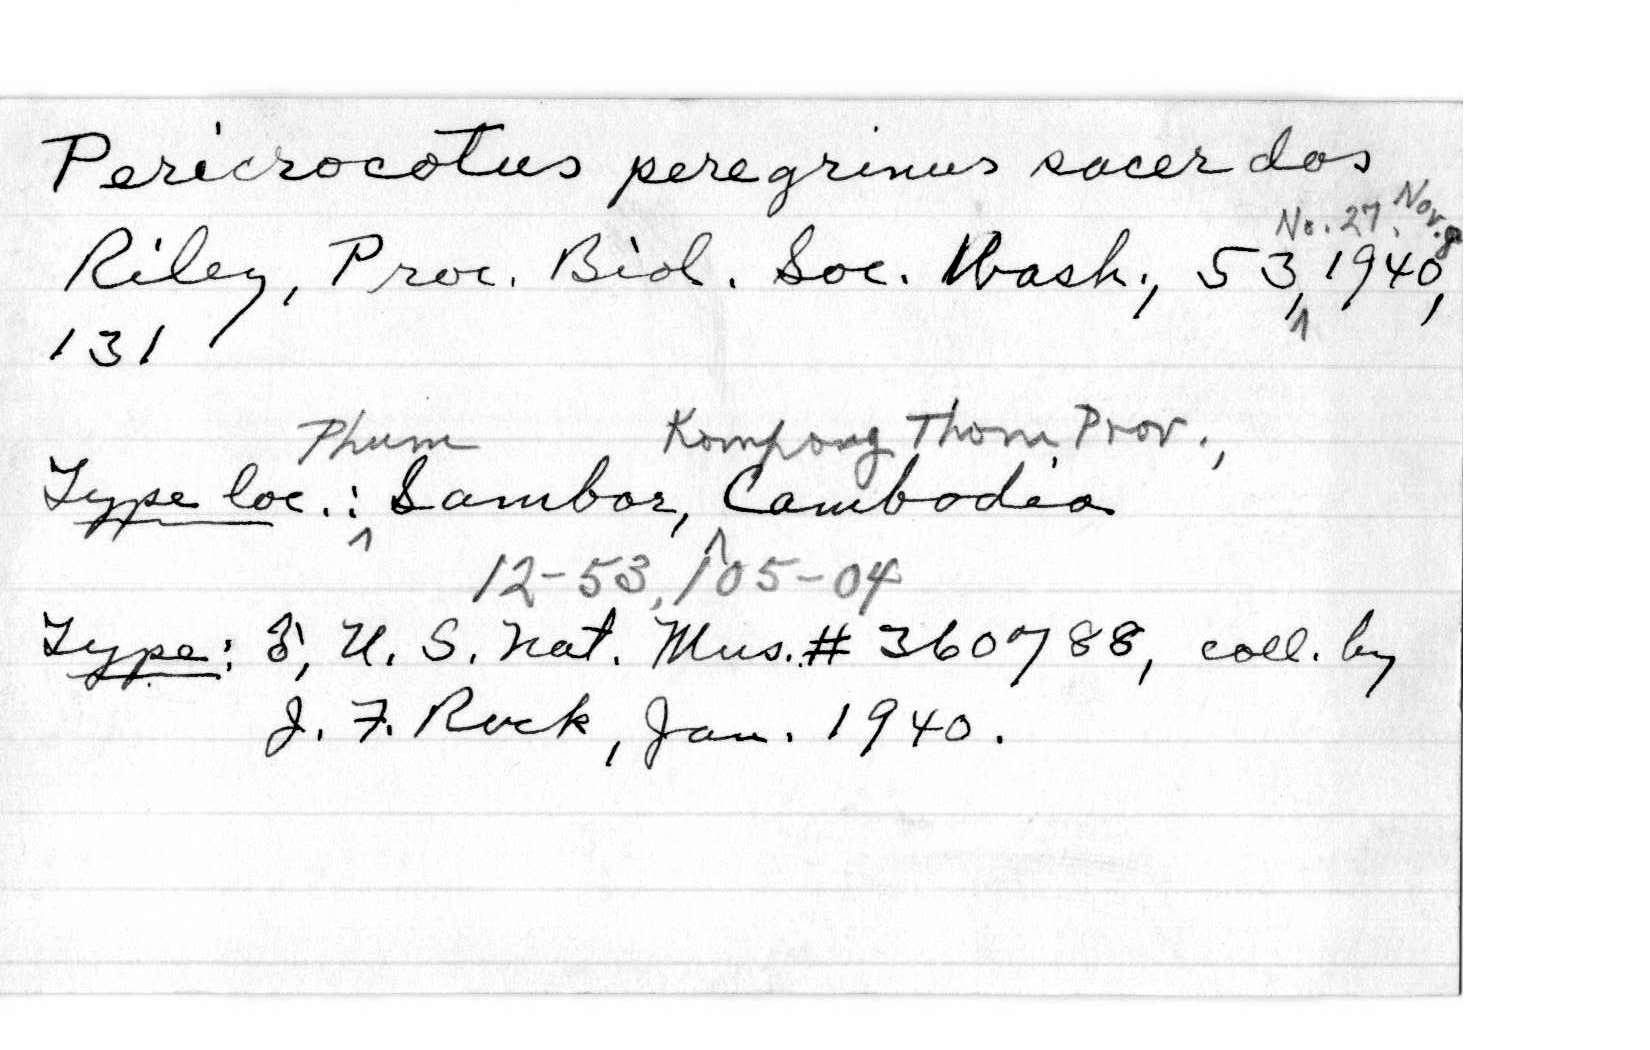 Pericrocotus peregrinus sacerdos
No. 27, Nov. 8
Riley, Proc. Biol. Soc. Wash., 53, 1940,
131
Phum Kompong Thom Prov.,
Type loc.: Sambor, Cambodia
12-53, 105-04
Type: ♂, U. S. Nat. Mus. # 360788, coll. by
J. F. Rock, Jan. 1940.